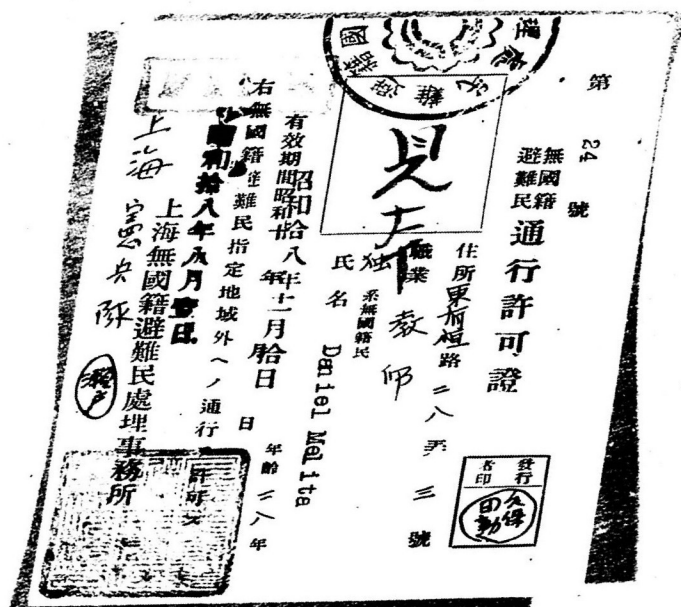 第 24 號
無國籍
避難民
通行許可證
住所 東有恒路 二八弄 三號
職業 教師
独系無國籍民
氏名 Daniel Melita
年齡 二八年
有效期間昭和十 年 月 日
昭和拾八年十一月拾日
右無國籍避難民指定地域外ヘノ通行ヲ許可ス
昭和拾八年八月壹日
上海無國籍避難民處理事務所
上海憲兵隊
瀬戸
見本
發行
者印
久保
田勤